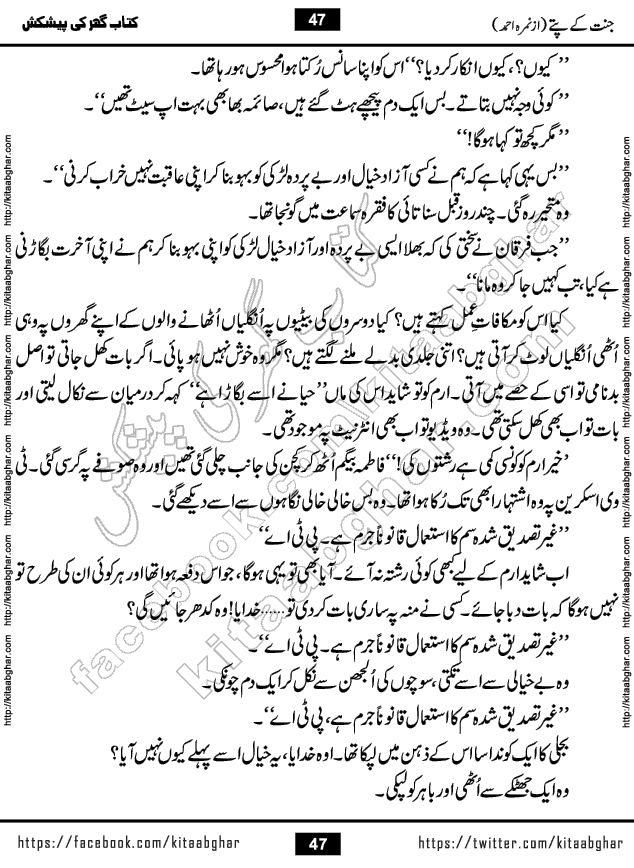 جنت کے پتے (از نمرہ احمد)
47
کتاب گھر کی پیشکش
’’کیوں؟، کیوں انکار کر دیا؟‘‘ اس کو اپنا سانس رُکتا ہوا محسوس ہو رہا تھا۔
’’کوئی وجہ نہیں بتاتے۔ بس ایک دم پیچھے ہٹ گئے ہیں، صائمہ بھابھی بہت اپ سیٹ تھیں‘‘۔
’’مگر کچھ تو کہا ہو گا!‘‘
’’بس یہی کہا ہے کہ ہم نے کسی آزاد خیال اور بے پردہ لڑکی کو بہو بنا کر اپنی عاقبت نہیں خراب کرنی‘‘۔
وہ متحیر رہ گئی۔ چند روز قبل سنا تائی کا فقرہ سماعت میں گونجا تھا۔
’’جب فرقان نے سختی کی کہ بھلا ایسی بے پردہ اور آزاد خیال لڑکی کو اپنی بہو بنا کر ہم نے اپنی آخرت بگاڑنی
ہے کیا، تب کہیں جا کر وہ مانا‘‘۔
کیا اس کو مکافاتِ عمل کہتے ہیں؟ کیا دوسروں کی بیٹیوں پہ اُنگلیاں اُٹھانے والوں کے اپنے گھروں پہ وہی
اُٹھی اُنگلیاں لوٹ کر آتی ہیں؟ اتنی جلدی بدلے ملنے لگتے ہیں؟ مگر وہ خوش نہیں ہو پائی۔ اگر بات کھل جاتی تو اصل
بدنامی تو اسی کے حصے میں آتی۔ ارم کو تو شاید اس کی ماں ’’حیا نے اسے بگاڑا ہے‘‘ کہہ کر درمیان سے نکال لیتی اور
بات تو اب بھی کھل سکتی تھی۔ وہ ویڈیو تو اب بھی انٹرنیٹ پہ موجود تھی۔
’خیر ارم کو کونسی کمی ہے رشتوں کی!‘‘ فاطمہ بیگم اُٹھ کر کچن کی جانب چلی گئی تھیں اور وہ صوفے پہ گر سی گئی۔ ٹی
وی اسکرین پہ وہ اشتہار ابھی تک رُکا ہوا تھا۔ وہ بس خالی خالی نگاہوں سے اسے دیکھے گئی۔
’’غیر تصدیق شدہ سم کا استعمال قانوناً جرم ہے۔ پی ٹی اے‘‘
اب شاید ارم کے لیے کبھی کوئی رشتہ نہ آئے۔ آیا بھی تو یہی ہو گا، جو اس دفعہ ہوا تھا اور ہر کوئی ان کی طرح تو
نہیں ہو گا کہ بات دبا جائے۔ کسی نے منہ پہ ساری بات کر دی تو……خدایا! وہ کدھر جائیں گی؟
’’غیر تصدیق شدہ سم کا استعمال قانوناً جرم ہے۔ پی ٹی اے‘‘۔
وہ بے خیالی سے اسے تکتی، سوچوں کی اُلجھن سے نکل کر ایک دم چونکی۔
’’غیر تصدیق شدہ سم کا استعمال قانوناً جرم ہے، پی ٹی اے‘‘۔
بجلی کا ایک کوندا سا اس کے ذہن میں لپکا تھا۔ او خدایا، یہ خیال اسے پہلے کیوں نہیں آیا؟
وہ ایک جھٹکے سے اُٹھی اور باہر کو لپکی۔
کتاب گھر کی پیشکش
kitaabghar.com
facebook.com/kitaabghar
http://kitaabghar.com http://kitaabghar.com http://kitaabghar.com http://kitaabghar.com http://kitaabghar.com http://kitaabghar.com
http://kitaabghar.com http://kitaabghar.com http://kitaabghar.com http://kitaabghar.com http://kitaabghar.com http://kitaabghar.com
https://facebook.com/kitaabghar
47
https://twitter.com/kitaabghar